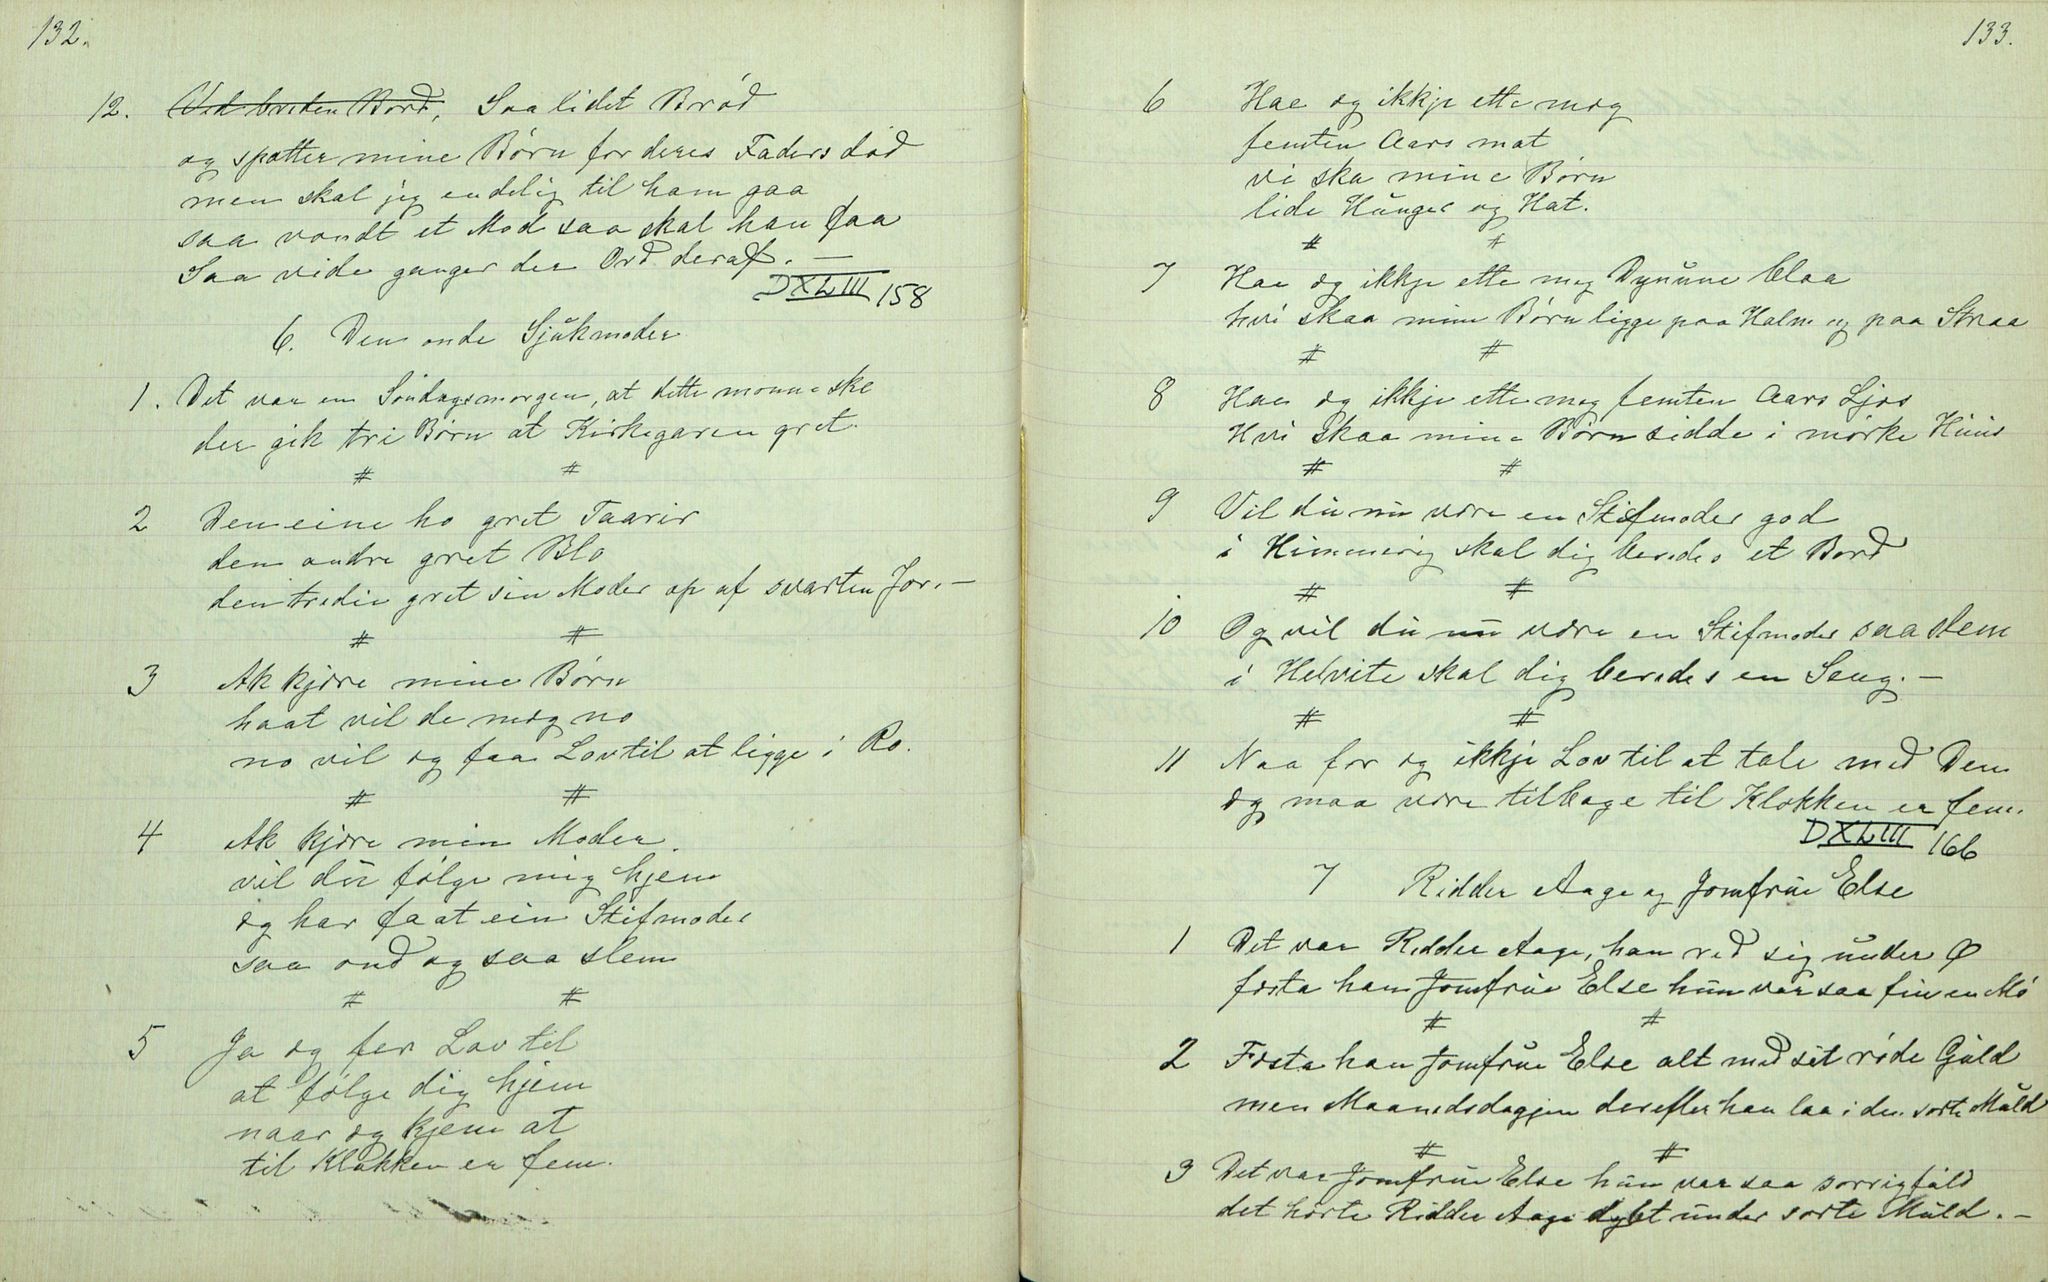 132.
12. Ved breden Bord, Saa lidet Brød
og spotter mine Børn for deres Faders død
men skal jeg endelig til ham gaa
saa vondt et Mod saa skal han faa
Saa vide ganger der Ord deraf. —
DXLIII 158
6. Den onde Sjukmoder
1. Det var en Søndagsmorgen, at dette monne ske
der gik tri Børn at Kirkegaren gret.
# #
2 Den eine ho gret Taarir
den andre gret Blo
den tredie gret sin Moder op af svarten Jor. —
# #
3 Ak kjære mine Børn
haat vil de mæg no
no vil eg faa Lov til at ligge i Ro.
# #
4 Ak kjære min Moder.
vil du følge mig hjem
eg har faat ein Stifmoder
saa ond og saa slem
# #
5 Ja eg fer Lov til
at følge dig hjem
naar eg kjem at
til Klokken er fem.
133.
6 Hae eg ikkje ette mæg
femten Aars mat
vi ska mine Børn
lide Hunger og Hat.
# #
7 Hae eg ikkje ette mæg Dynune blaa
hvi skaa mine Børn ligge paa Halm og paa Straa
# #
8 Hae eg ikkje ette mæg femten Aars Ljos
Hvi skaa mine Børn sidde i mørke Huus
# #
9 Vil du nu være en Stifmoder god
i Himmerig skal dig beredes et Bord
# #
10 Og vil du nu være en Stifmoder saa slem
i Helvite skal dig beredes en Seng. —
# #
11 Naa for eg ikkje Lov til at tale med Dem
eg maa være tilbage til Klokken er fem.
DXLIII 166
7 Ridder Aage og Jomfrue Else
1 Det var Ridder Aage, han red sig under Ø
fæsta han Jomfrue Else hun var saa fin en Mø
# #
2 Fæsta han Jomfrue Else alt med sit røde Guld
men Maanedsdagjen derefter han laa i den sorte Muld
# #
3 Det var Jomfrue Else hun var saa sorrigfuld
det hørte Ridder Aage dybt under sorte Muld. —